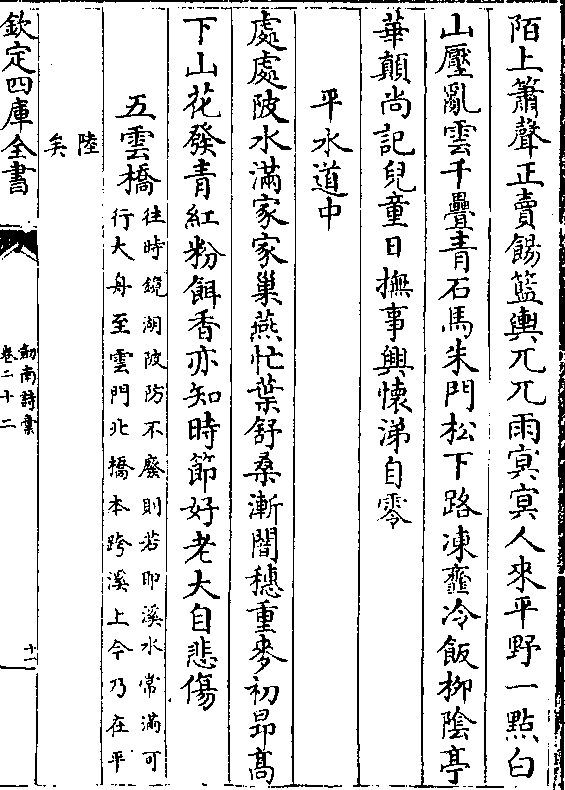 陌上簫聲正賣餳籃輿兀兀雨㝠㝠人來平野一點白
山壓亂雲千疊青石馬朱門松下路凍虀冷飯栁陰亭
華顛尚記兒童日撫事興懐涕自零
平水道中
處處陂水滿家家巢燕忙葉舒桑漸闇穗重麥初昻髙
下山花發青紅粉餌香亦知時節好老大自悲傷
五雲橋
往時鏡湖陂防不廢則若耶溪水常滿可
行大舟至雲門北橋本跨溪上今乃在平
陸
矣
欽定四庫全書
劒南詩稾
卷二十二
十一